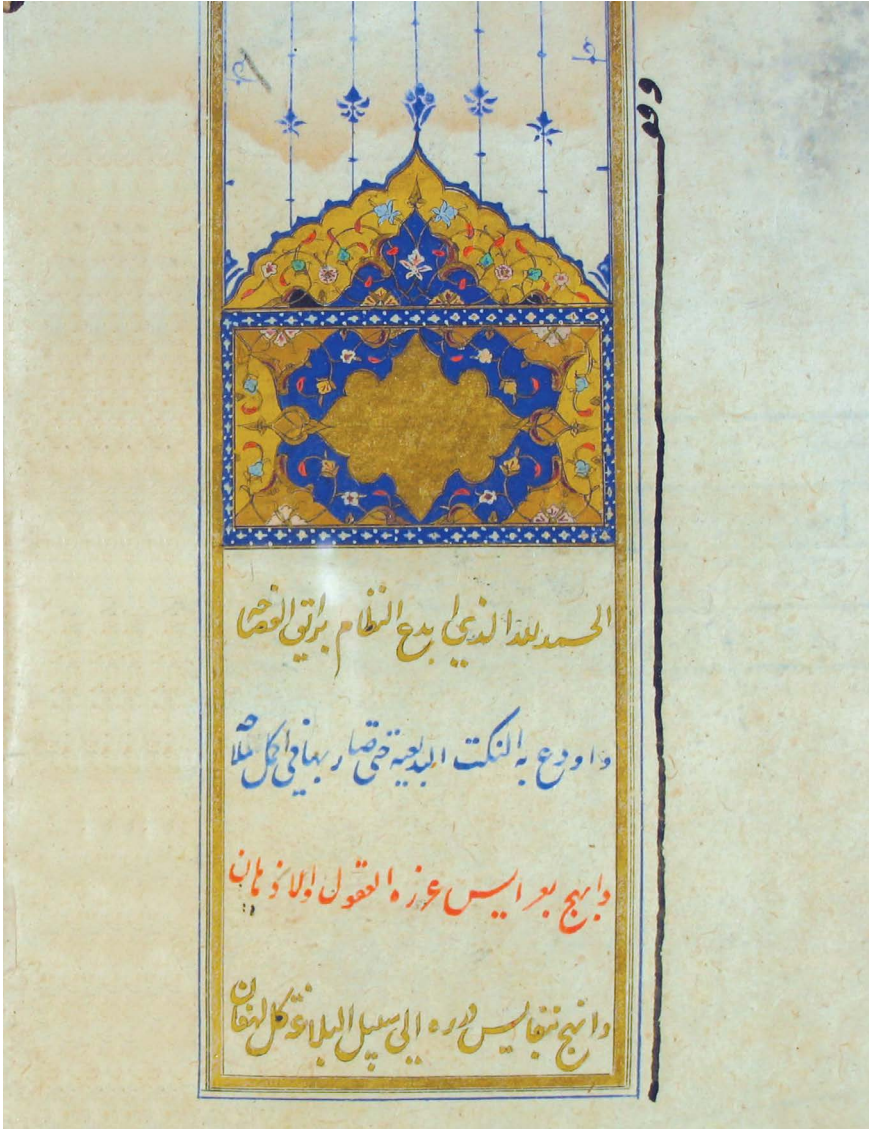 الحمد لله الذي ابدع النظام براتق الفصاحه
واودع به النكت البديعية حتى صار بها في اكمل
وابهج بعرايس غرره العقول والاذهان
وانهج بنفايس درره الى سبيل البلاغة كل لهفان
وقف